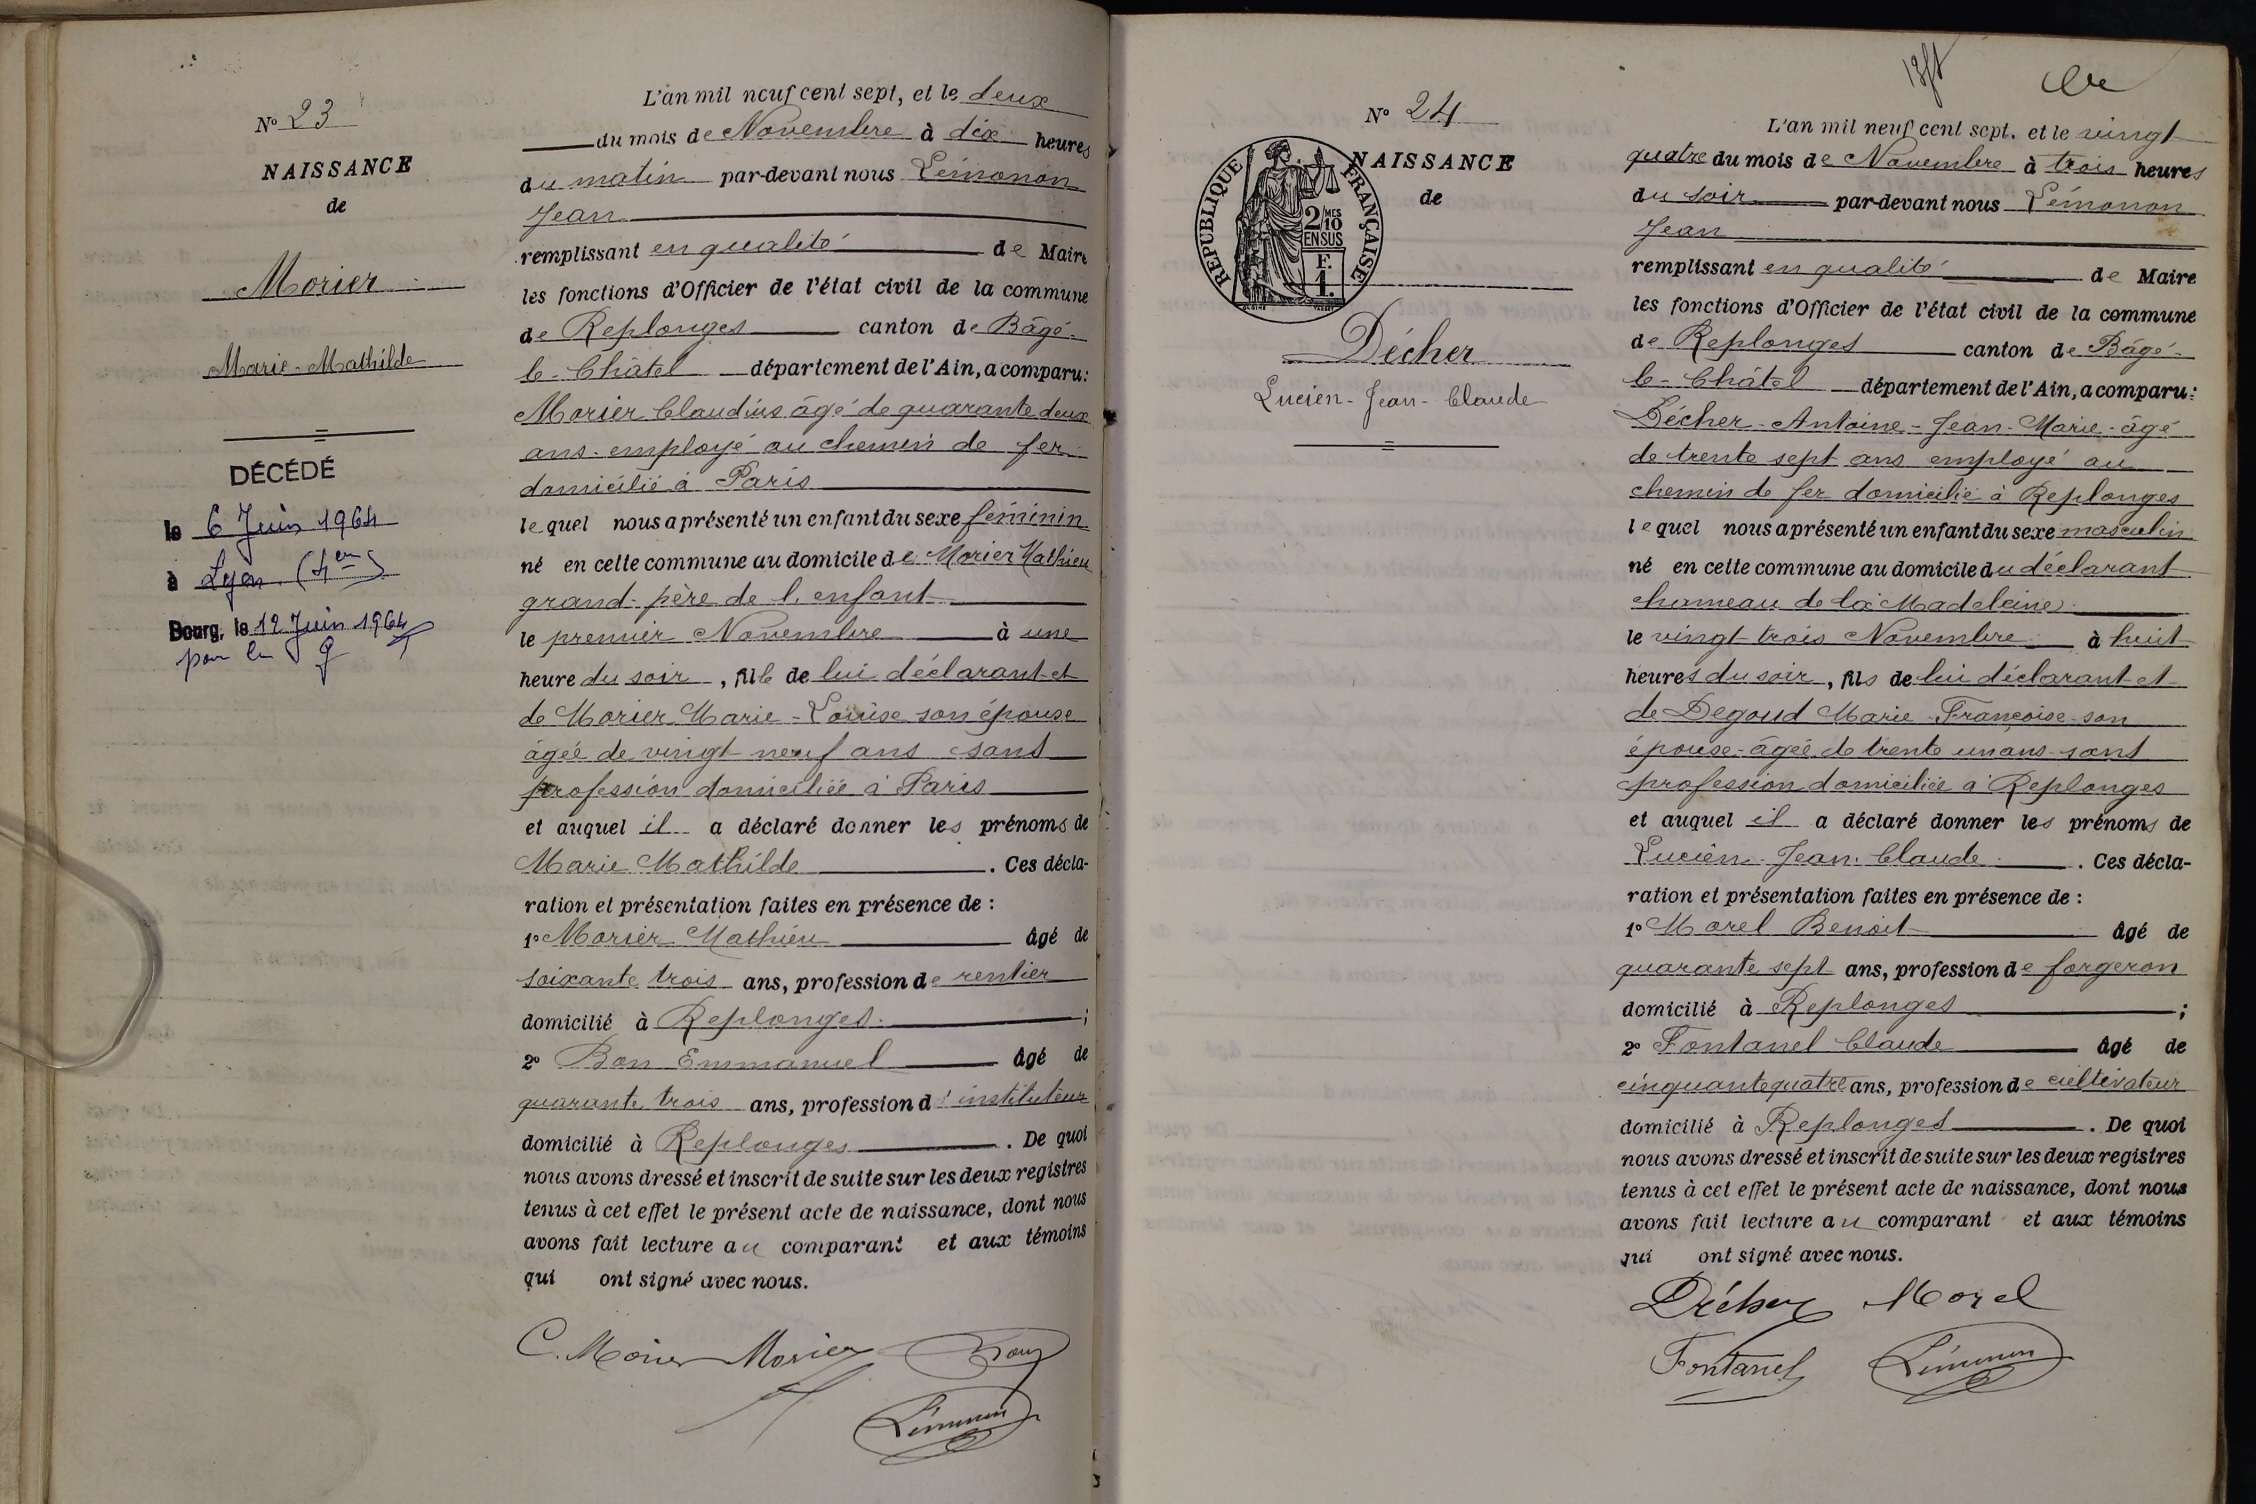 N° 23
NAISSANCE
de
Morier
Marie-Mathilde
DÉCÉDÉ
le 6 Juin 1964
à Lyon (4em)
Bourg, le 12 Juin 1964
pour le
L'an mil neuf cent sept, et le deux
du mois de Novembre à dix heures
du matin par-devant nous Lémonon
Jean
remplissant en qualité de Maire
les fonctions d'Officier de l'état civil de la commune
de Replonges canton de Bâgé-
le-Châtel département de l'Ain, a comparu:
Morier Claudius âgé de quarante deux
ans employé au chemin de fer
domicilié à Paris
lequel nous a présenté un enfant du sexe féminin
né en cette commune au domicile de Morier Mathieu
grand-père de l'enfant
le premier Novembre à une
heure du soir, fille de lui déclarant et
de Morier Marie-Louise son épouse
âgée de vingt neuf ans sans
profession domiciliée à Paris
et auquel il a déclaré donner les prénoms de
Marie Mathilde. Ces décla-
ration et présentation faites en présence de :
1° Morier Mathieu âgé de
soixante trois ans, profession de rentier
domicilié à Replonges ;
2° Bon Emmanuel âgé de
quarante trois ans, profession d'instituteur
domicilié à Replonges. De quoi
nous avons dressé et inscrit de suite sur les deux registres
tenus à cet effet le présent acte de naissance, dont nous
avons fait lecture au comparant et aux témoins
qui ont signé avec nous.
C. Morier Morier Bon
Lémonon
N° 24
NAISSANCE
de
RÉPUBLIQUE FRANÇAISE
2/10 MES
EN SUS
F.
1.
Décher
Lucien-Jean-Claude
L'an mil neuf cent sept. et le vingt
quatre du mois de Novembre à trois heures
du soir par-devant nous Lémonon
Jean
remplissant en qualité de Maire
les fonctions d'Officier de l'état civil de la commune
de Replonges canton de Bâgé-
le-Châtel département de l'Ain, a comparu:
Décher-Antoine-Jean-Marie-âgé
de trente sept ans employé au
chemin de fer domicilié à Replonges
lequel nous a présenté un enfant du sexe masculin
né en cette commune au domicile du déclarant
hameau de la Madeleine
le vingt trois Novembre à huit
heures du soir, fils de lui déclarant et
de Degoud Marie-Françoise son
épouse-âgée de trente un ans sans
profession domiciliée à Replonges
et auquel il a déclaré donner les prénoms de
Lucien-Jean-Claude. Ces décla-
ration et présentation faites en présence de :
1° Morel Benoit âgé de
quarante sept ans, profession de forgeron
domicilié à Replonges ;
2° Fontanel Claude âgé de
cinquante quatre ans, profession de cultivateur
domicilié à Replonges. De quoi
nous avons dressé et inscrit de suite sur les deux registres
tenus à cet effet le présent acte de naissance, dont nous
avons fait lecture au comparant et aux témoins
qui ont signé avec nous.
Décher Morel
Fontanel Lémonon